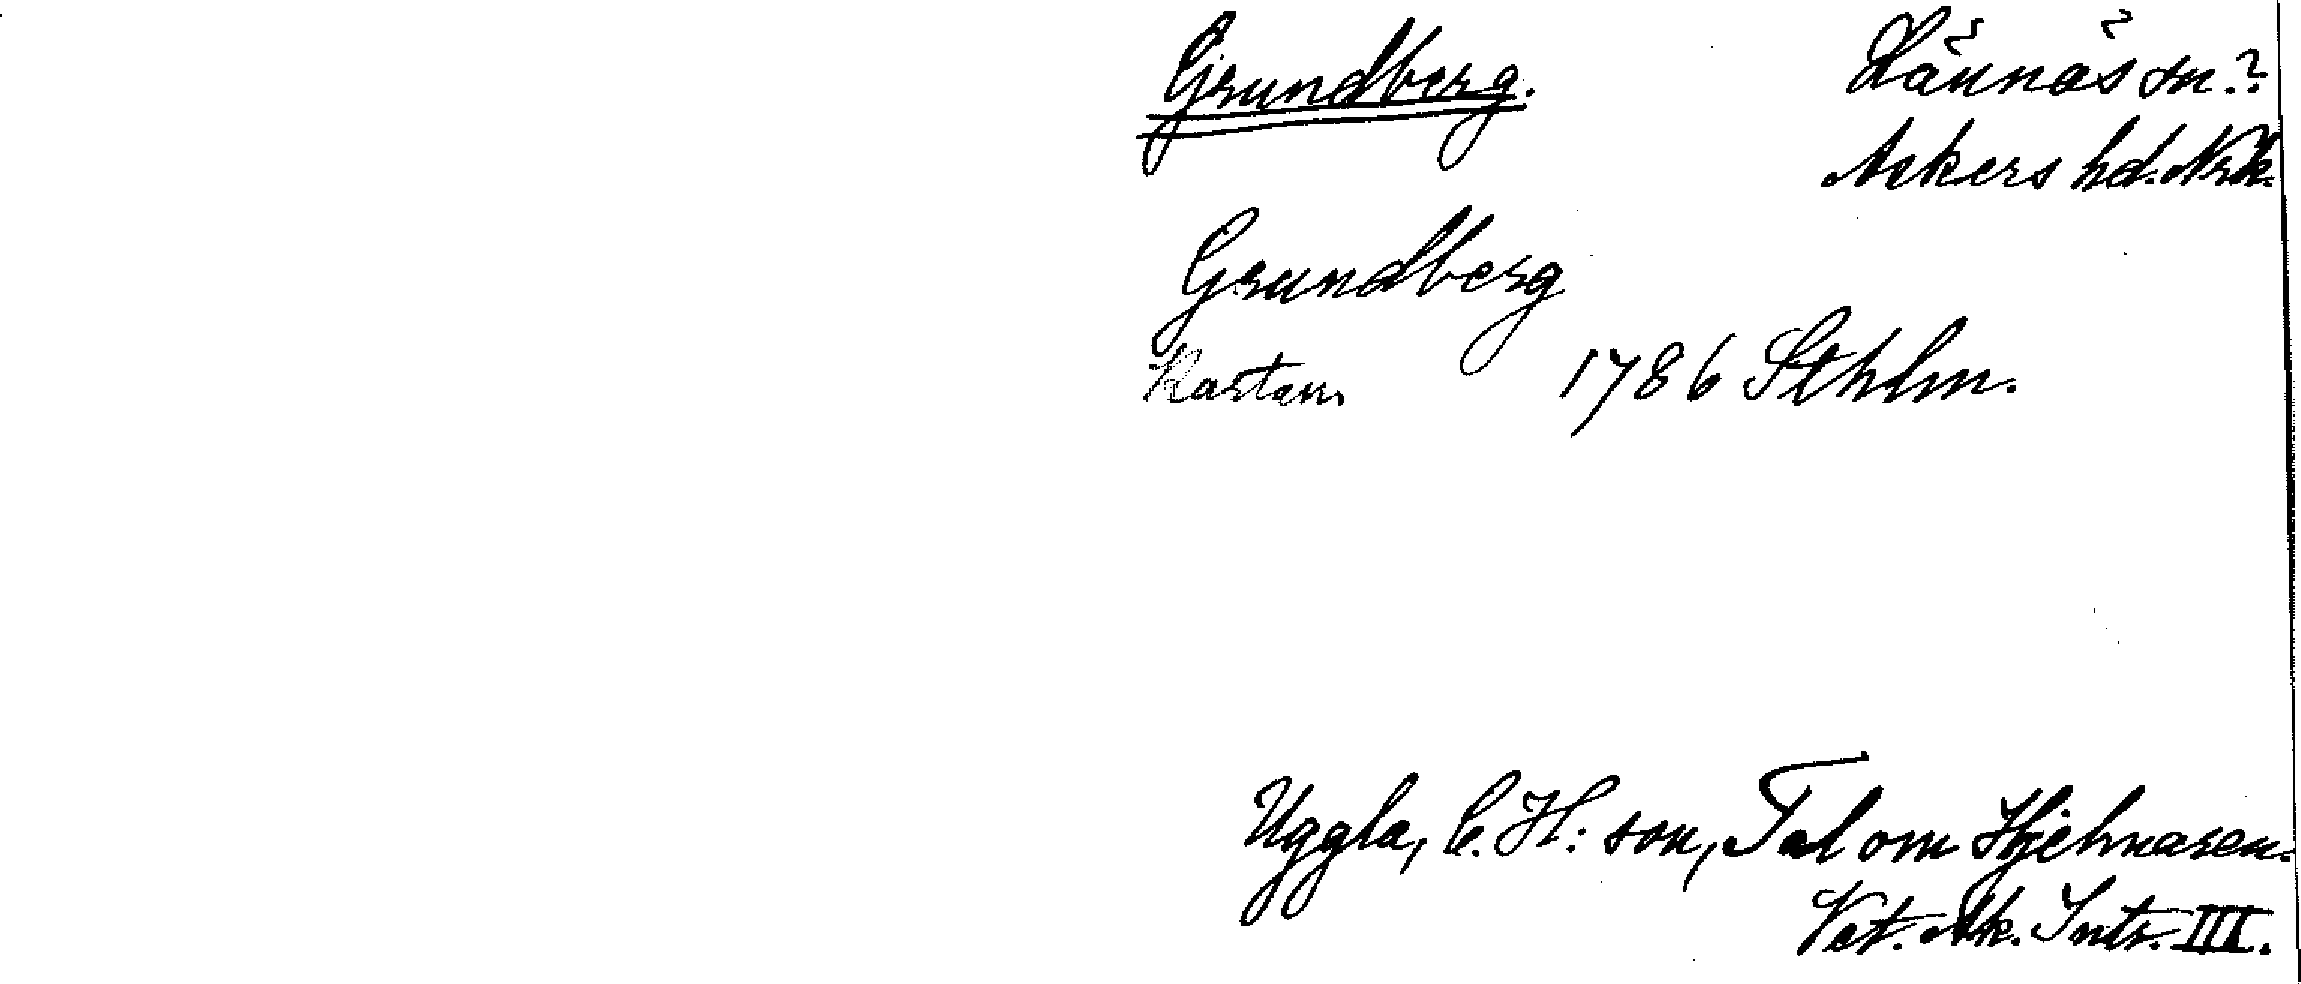 Grundberg. Lännäs sn?
Askers hd. Nrk.
Grundberg
Kartan 1786 Sthlm.
Uggla, C. H:son, Tal om Hjelmaren.
Vet. Ak. Intr. III.